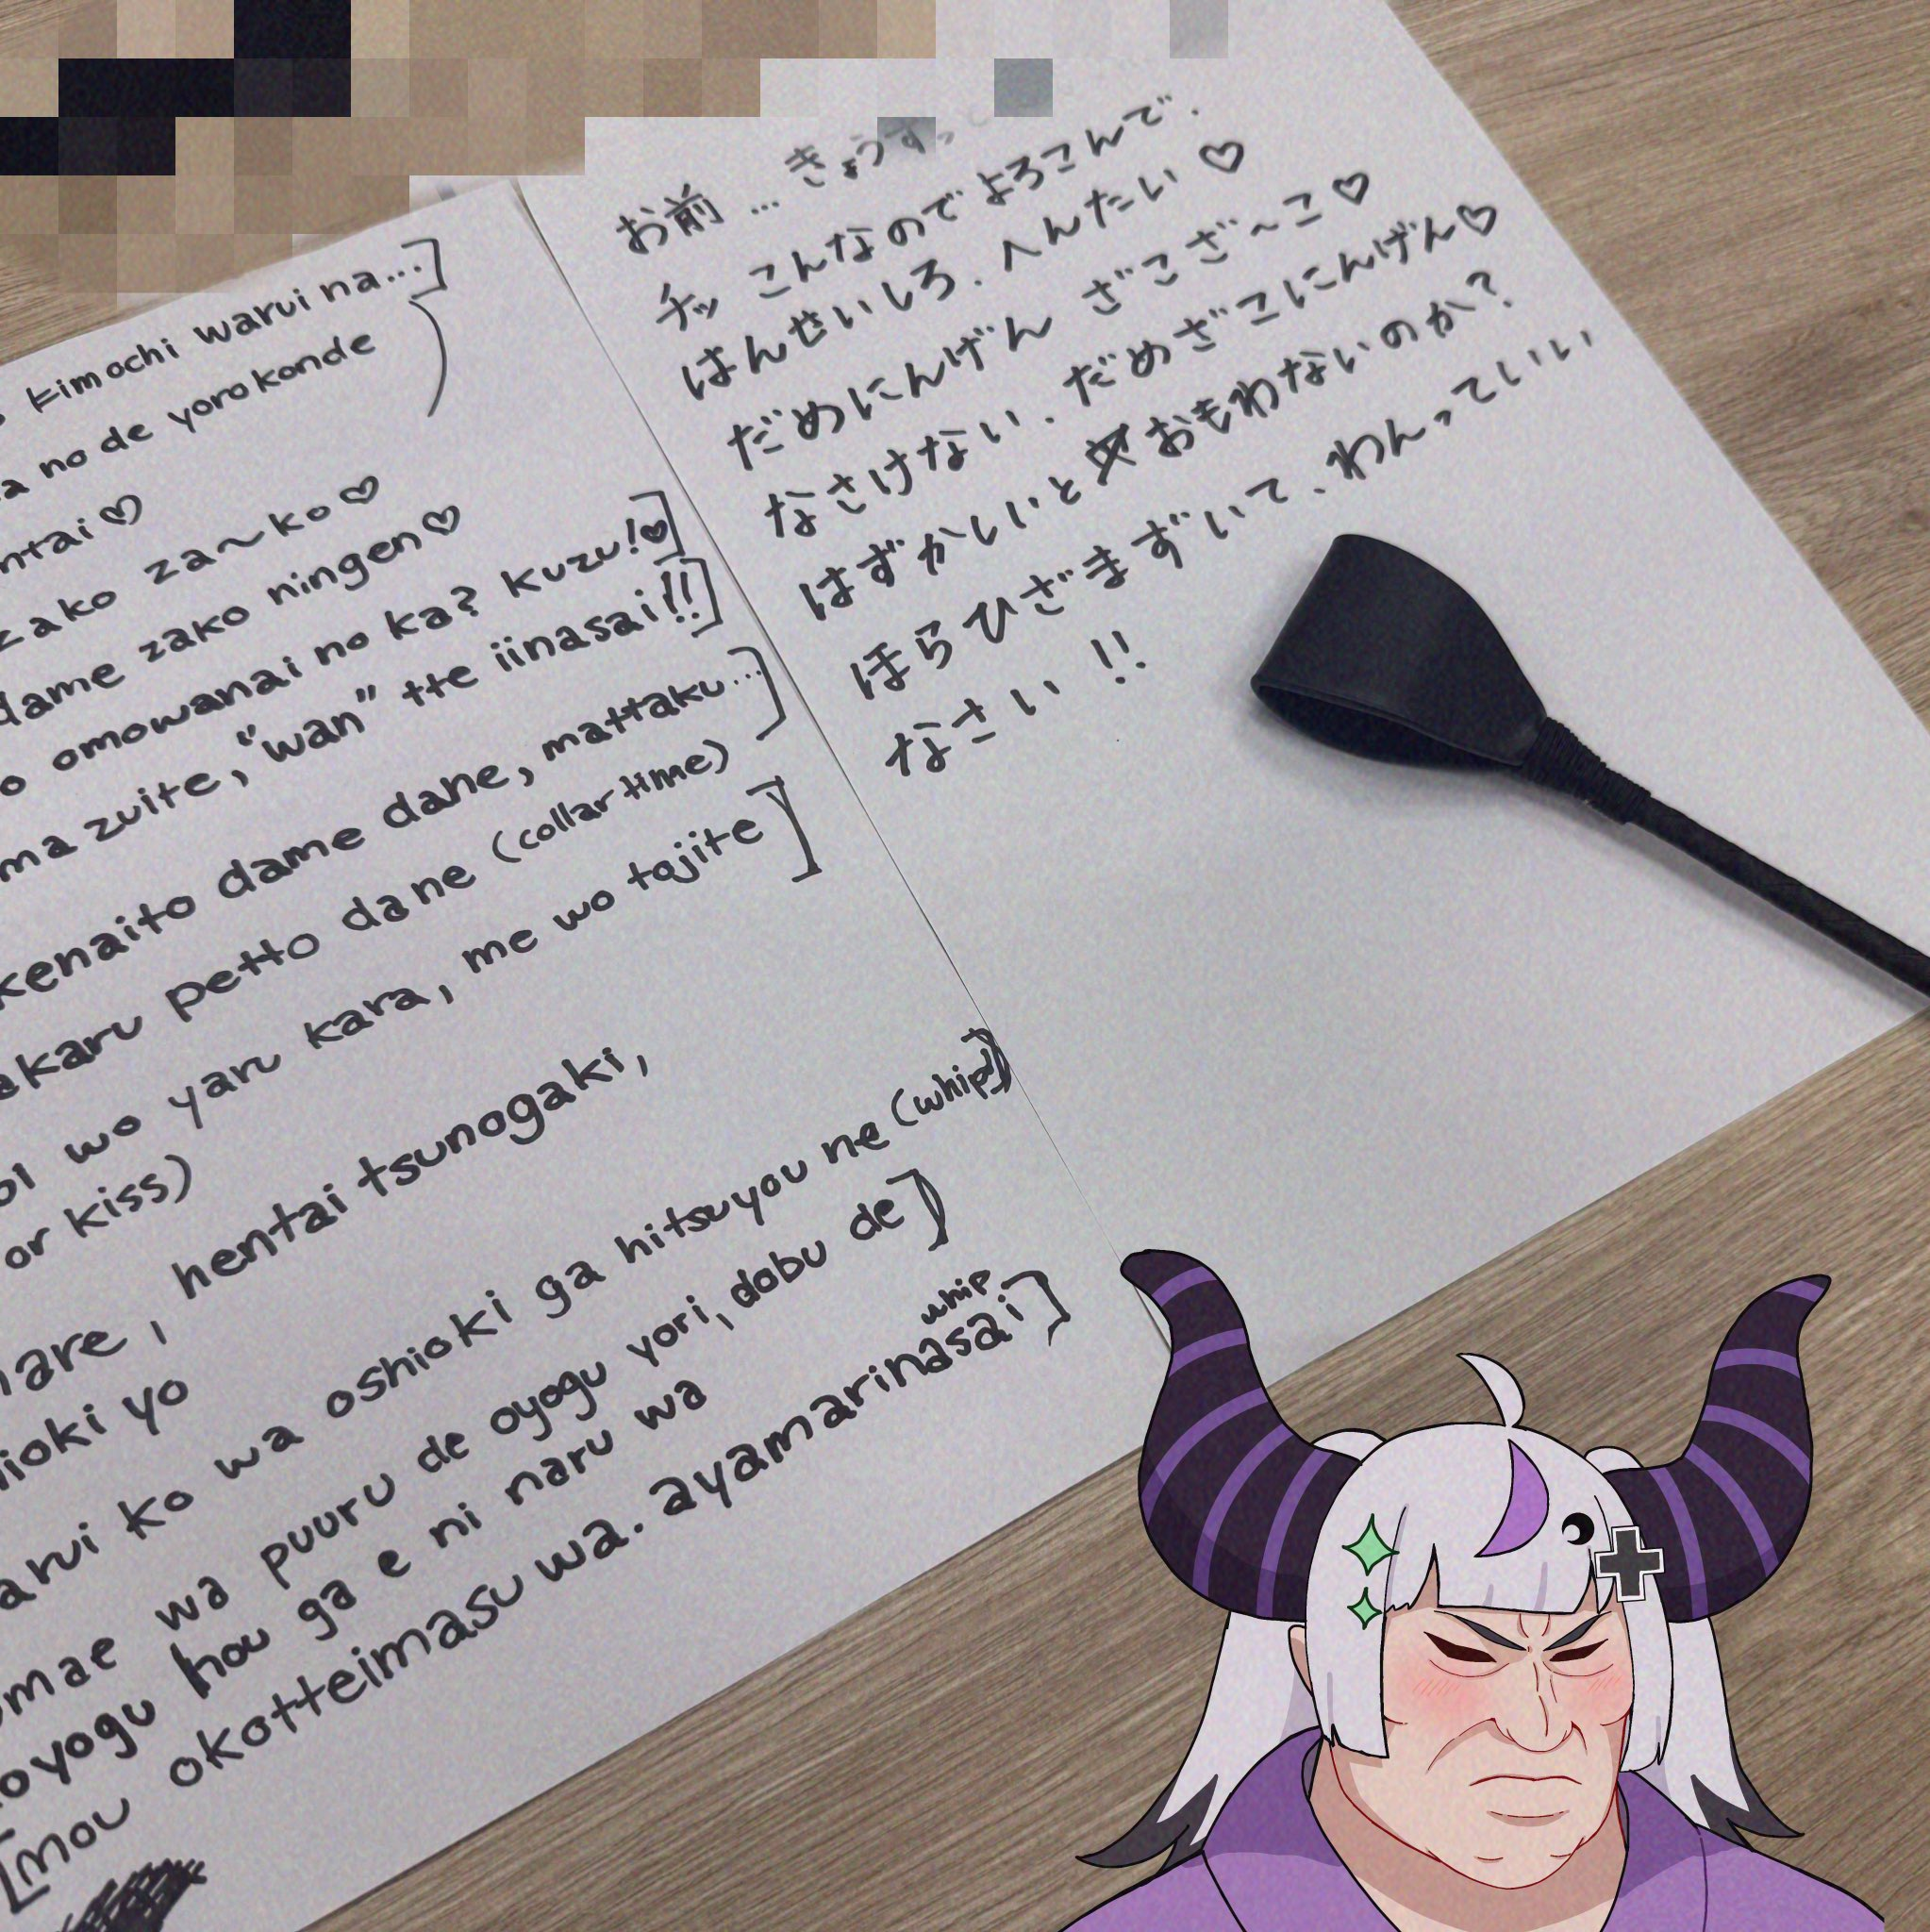 kimochi warui na...]
a no de yorokonde
ntai♡
zako za~ko♡
dame zako ningen♡
o omowanai no ka? kuzu!♡]
ma zuite, "wan" tte iinasai!!]
kenaito dame dane, mattaku...]
akaru petto dane (collar time)
wo yaru kara, me wo tojite]
or kiss)
are, hentai tsunogaki,
ioki yo
arui ko wa oshioki ga hitsuyou ne (whip)]
omae wa puuru de oyogu yori, dobu de]
oyogu hou ga e ni naru wa
whip
[mou okotteimasu wa. ayamarinasai]
お前...きょうすっ
チッ こんなのでよろこんで.
はんせいしろ. へんたい♡
だめにんげん ざこざ~こ♡
なさけない. だめざこにんげん♡
はずかしいとおもわないのか?
ほらひざまずいて、わんっていい
なさい!!